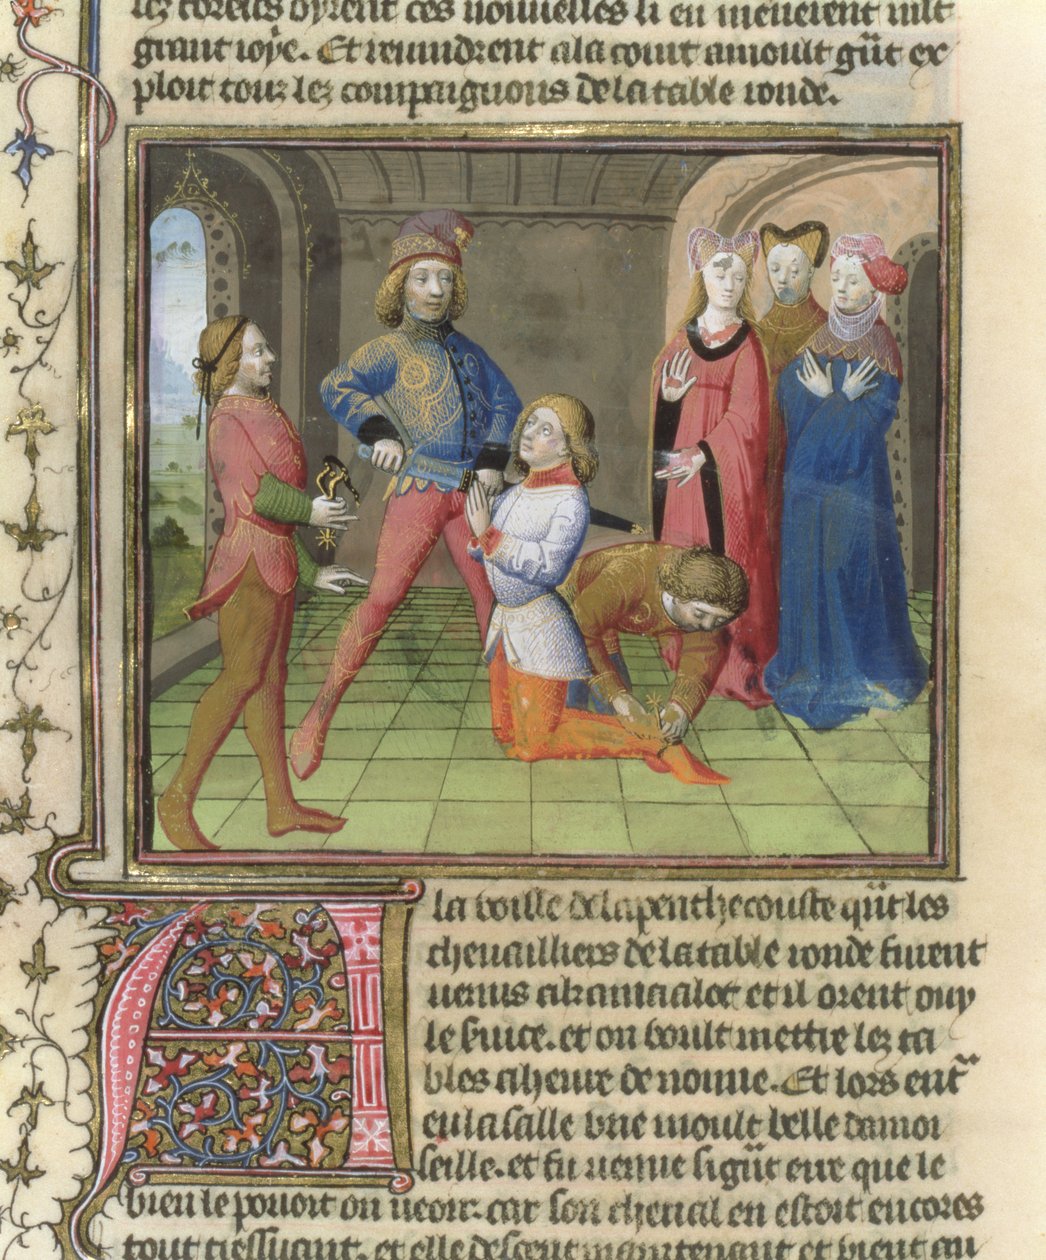 lez toreles dyrent ces nouuelles li en menerent mlt
grant ioye. Et reuindrent ala court amoult gr̃t ex
ploit touz lez compaignons de la table ronde.
A la veille de la penthecouste q̃nt les
cheualliers de la table ronde furent
uenus a kamaalot et il orent ouy
le seruice. et on voult mettre lez ta
bles a heure de nonne. Et lors ent̃
en la salle vne moult belle damoi
selle. et fu uenue si gr̃t eure que le
bien le pouoit on ueoir. car son cheual en estoit encores
tout tressuant. et elle descent maintenant et vient au